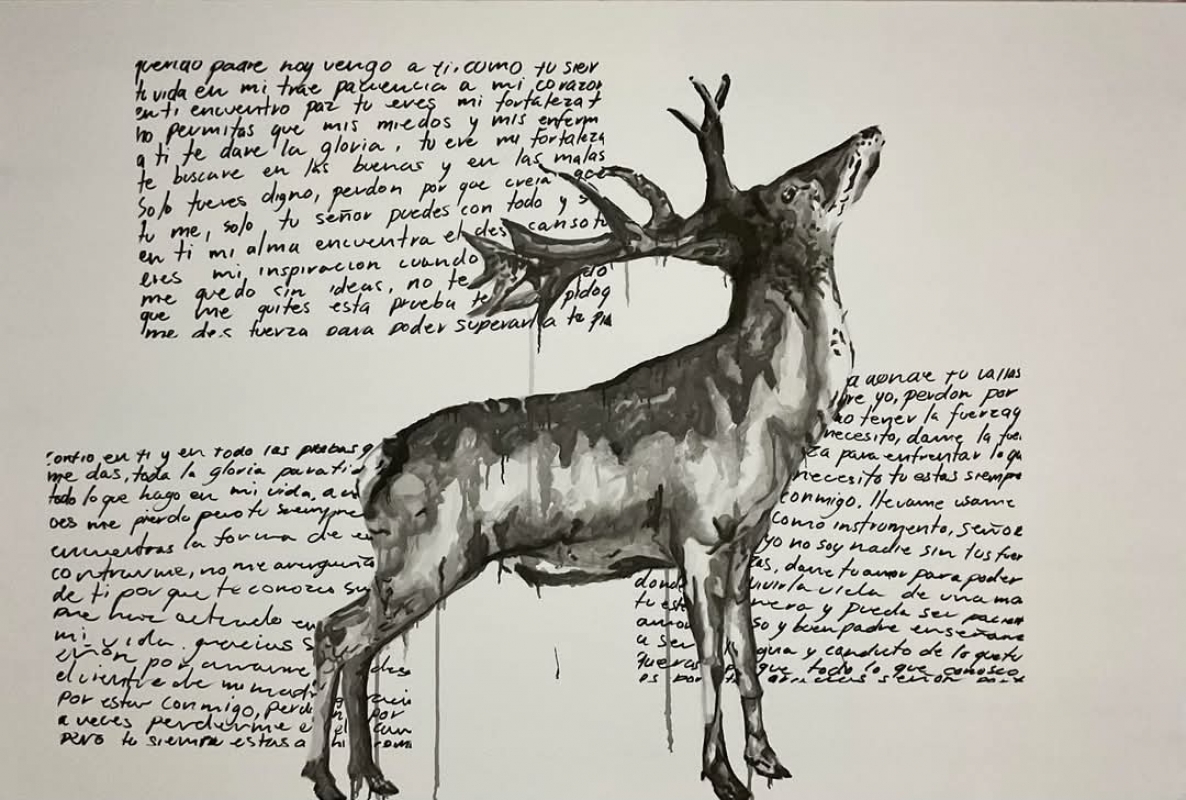 querido padre hoy vengo a ti, como tu sier
tu vida en mi, trae paciencia a mi corazon
en ti encuentro paz tu eres mi fortaleza t
no permitas que mis miedos y mis enferm
a ti te dare la gloria, tu ere mi fortaleza
te buscare en las buenas y en las malas
Solo tueres digno, perdon por que creia que
tu me, solo tu señor puedes con todo y s
en ti mi alma encuentra el des canso tu
eres mi inspiracion cuando
me quedo sin ideas, no te pidoq
que me quites esta prueba te
me des fuerza para poder superarla te pi
confio en ti y en todo las prebas q
me das, toda la gloria para ti
todo lo que hago en mi vida, a
ces me pierdo pero tu siempre
encuentras la forma de en
contrarme, no me averguenzo
de ti por que te conozco
mi vida. gracias S
eñor por amarme des
el vientre de mi mad
Por estar conmigo, Perd por
a veces perderme e
Pero tu siempre estas a hi
a donde tu vallas
re yo, perdon por
no tener la fuerza q
necesito, dame la fuer
za para enfrentar lo qu
necesito tu estas siempre
conmigo. llevame usame
como instrumento, Señor
yo no soy nadie sin tus fuer
zas, dame tu amor para poder
donde vivir la vida de una ma
tu est nera y pueda ser pacien
amor so y buen padre enseñame
a ser guia y conducto de lo que tu
queras que todo lo que conosco
es por señor